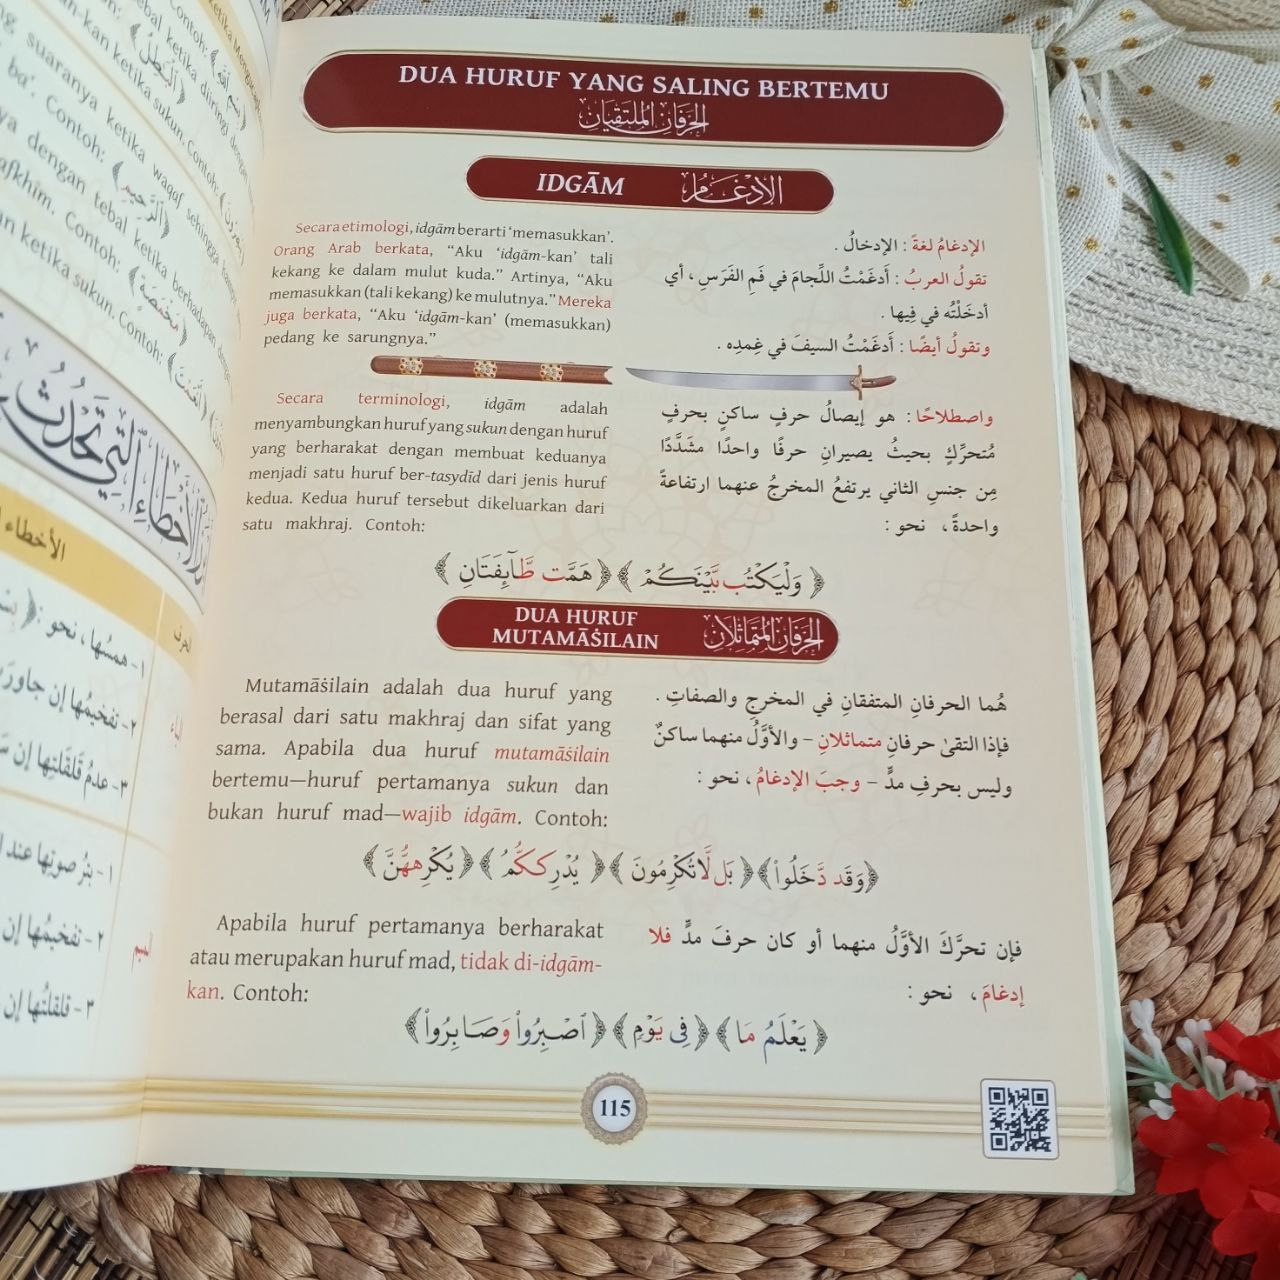 DUA HURUF YANG SALING BERTEMU
الحَرْفَانِ المُلْتَقِيَانِ
IDGĀM
الإِدْغَامُ
Secara etimologi, idgām berarti ‘memasukkan’.
Orang Arab berkata, “Aku ‘idgām-kan’ tali
kekang ke dalam mulut kuda.” Artinya, “Aku
memasukkan (tali kekang) ke mulutnya.” Mereka
juga berkata, “Aku ‘idgām-kan’ (memasukkan)
pedang ke sarungnya.”
الإدغامُ لغةً : الإدخالُ .
تقولُ العربُ : أَدغَمْتُ اللِّجامَ في فَمِ الفَرَسِ ، أي
أدخَلْتُه في فِيها .
وتقولُ أيضًا : أَدغَمْتُ السيفَ في غِمدِه .
Secara terminologi, idgām adalah
menyambungkan huruf yang sukun dengan huruf
yang berharakat dengan membuat keduanya
menjadi satu huruf ber-tasydīd dari jenis huruf
kedua. Kedua huruf tersebut dikeluarkan dari
satu makhraj. Contoh:
واصطلاحًا : هو إيصالُ حرفٍ ساكنٍ بحرفٍ
مُتحرِّكٍ بحيثُ يصيرانِ حرفًا واحدًا مشَدَّدًا
مِن جنسِ الثاني يرتفعُ المخرجُ عنهما ارتفاعةً
واحدةً ، نحو :
﴿ وَلْيَكْتُب بَّيْنَكُمْ ﴾ ﴿ هَمَّت طَّآئِفَتَانِ ﴾
DUA HURUF
MUTAMĀṠILAIN
الحَرْفَانِ المُتَمَاثِلَانِ
Mutamāṡilain adalah dua huruf yang
berasal dari satu makhraj dan sifat yang
sama. Apabila dua huruf mutamāṡilain
bertemu—huruf pertamanya sukun dan
bukan huruf mad—wajib idgām. Contoh:
هُما الحرفانِ المتفقانِ في المخرجِ والصفاتِ .
فإذا التقىٰ حرفانِ متماثلانِ - والأوَّلُ منهما ساكنٌ
وليس بحرفِ مدٍّ - وجبَ الإدغامُ ، نحو :
﴿وَقَد دَّخَلُوا۟﴾ ﴿ بَل لَّا تُكْرِمُونَ ﴾ ﴿ يُدْرِككُّمُ ﴾ ﴿ يُكْرِههُّنَّ ﴾
Apabila huruf pertamanya berharakat
atau merupakan huruf mad, tidak di-idgām-
kan. Contoh:
فإن تحرَّكَ الأوَّلُ منهما أو كان حرفَ مدٍّ فلا
إدغامَ ، نحو :
﴿ يَعْلَمُ مَا ﴾ ﴿ فِى يَوْمٍ ﴾ ﴿ ٱصْبِرُوا۟ وَصَابِرُوا۟ ﴾
115
الأخطاء
الحرف
١- همسُها ، نحو :
٢- تفخيمُها إن
٣- عدمُ قَلقَلتِها إن
الباء
٢- تفخيمُها إن
٣- قلقلتُها إن
الميم